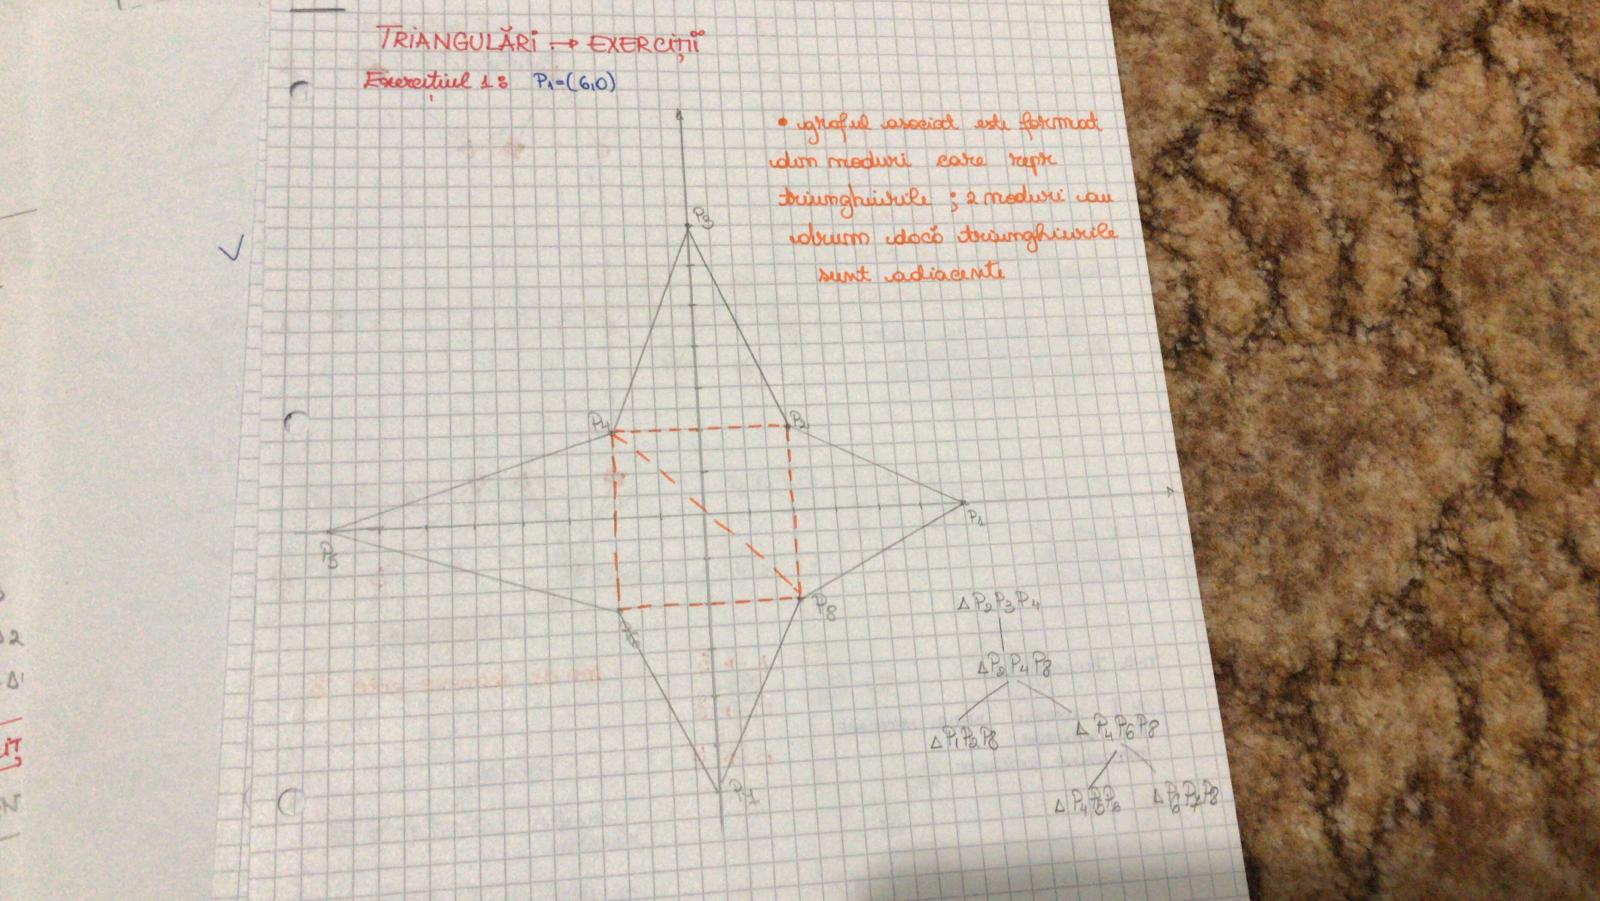 TRIANGULĂRI → EXERCIȚII
Exercițiul 1: P₁=(6,0)
• graful asociat este format
din noduri care repr
triunghiurile ; 2 noduri au
drum dacă triunghiurile
sunt adiacente
P₃
P₄
P₂
P₁
P₅
P₈
P₆
P₇
Δ P₂P₃P₄
Δ P₂P₄P₈
Δ P₁P₂P₈
Δ P₄P₆P₈
Δ P₄P₅P₆
Δ P₆P₇P₈